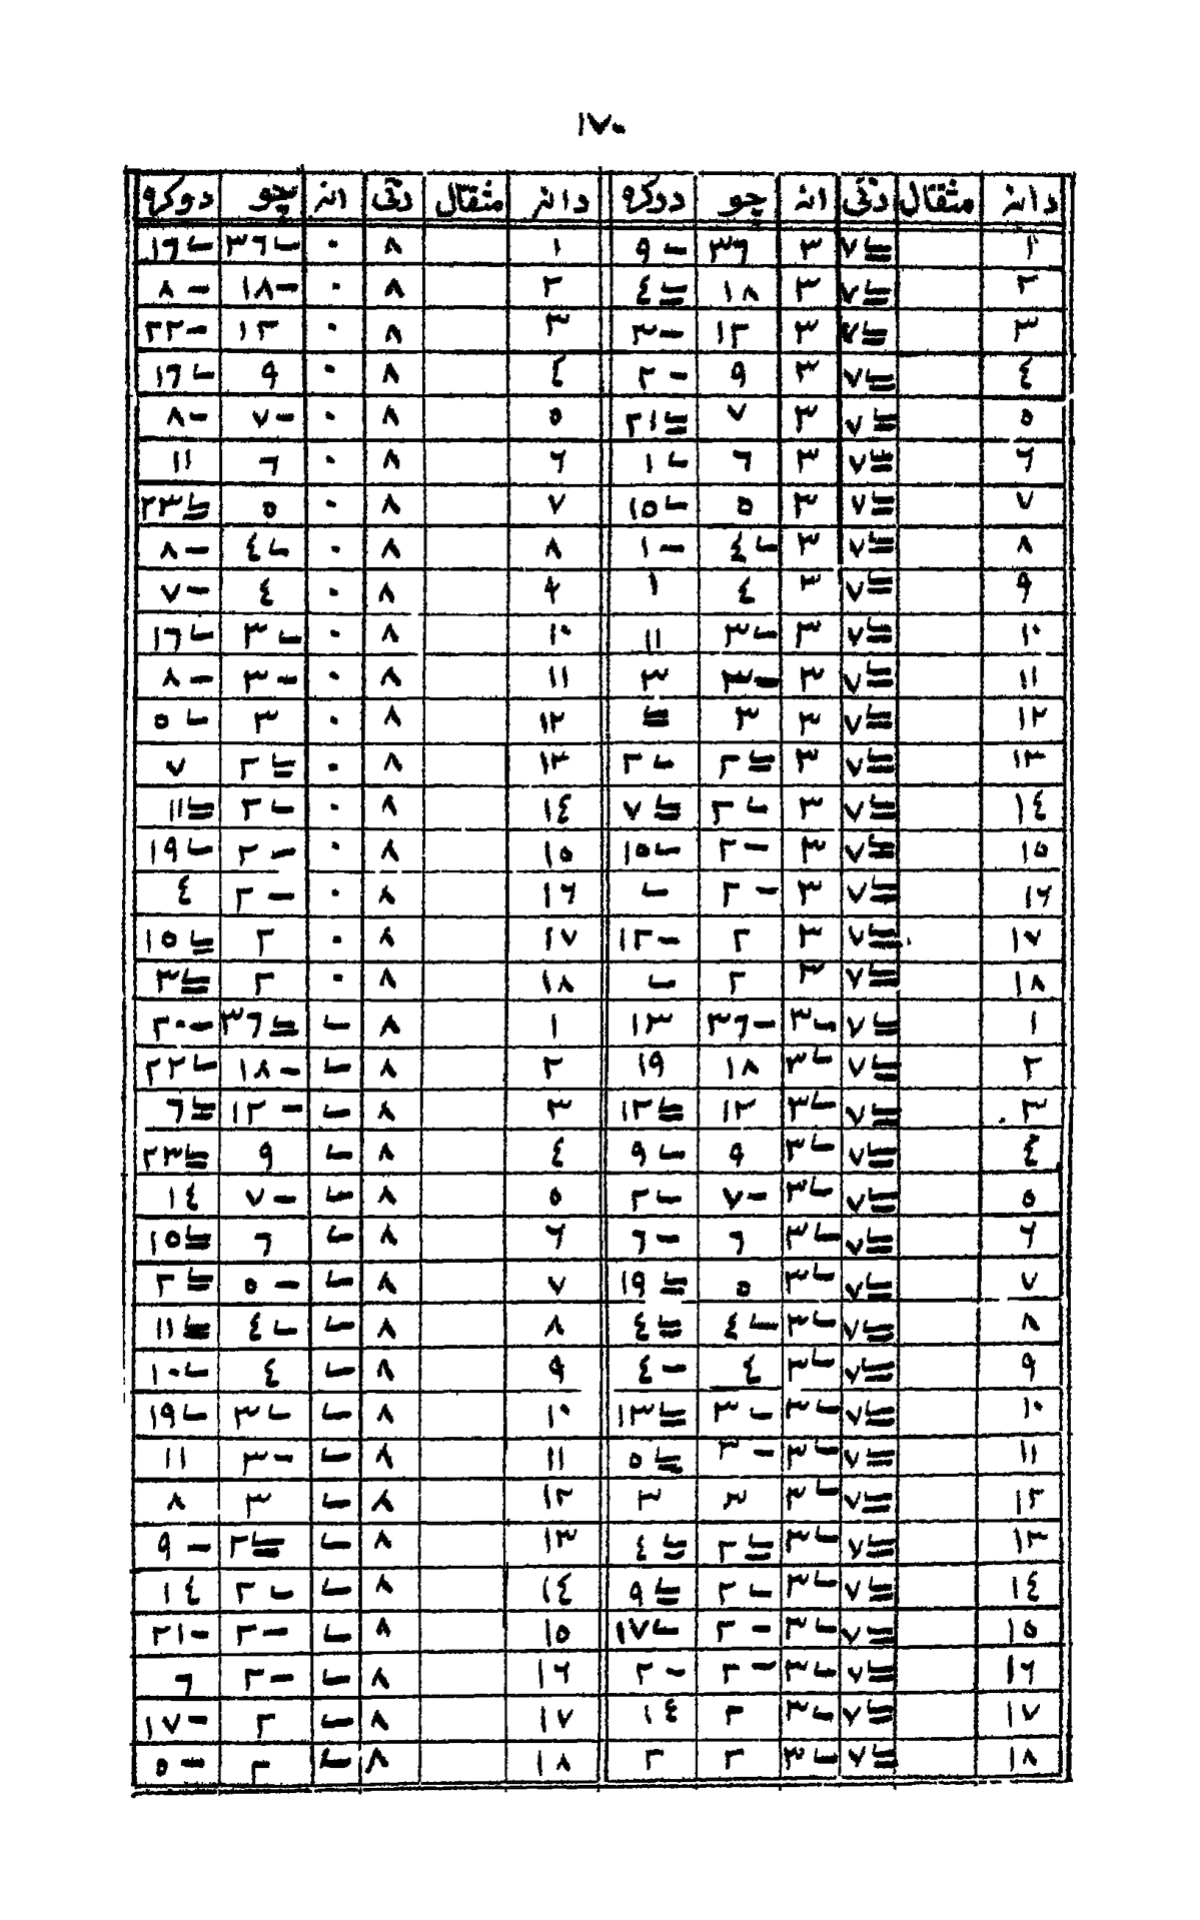 ١٧٠
دانه مثقال رتي انه چو دوكره دانه مثقال رتي انه چو دوكره
١ ٧ ٣ ٣٦ ٩ ١ ٨ ٠ ٣٦ ١٦
٢ ٧ ٣ ١٨ ٤ ٢ ٨ ٠ ١٨ ٨
٣ ٧ ٣ ١٢ ٣ ٣ ٨ ٠ ١٢ ٢٢
٤ ٧ ٣ ٩ ٢ ٤ ٨ ٠ ٩ ١٦
٥ ٧ ٣ ٧ ٢١ ٥ ٨ ٠ ٧ ٨
٦ ٧ ٣ ٦ ١ ٦ ٨ ٠ ٦ ١١
٧ ٧ ٣ ٥ ١٥ ٧ ٨ ٠ ٥ ٢٣
٨ ٧ ٣ ٤ ١ ٨ ٨ ٠ ٤ ٨
٩ ٧ ٣ ٤ ١ ٩ ٨ ٠ ٤ ٧
١٠ ٧ ٣ ٣ ١١ ١٠ ٨ ٠ ٣ ١٦
١١ ٧ ٣ ٣ ٣ ١١ ٨ ٠ ٣ ٨
١٢ ٧ ٣ ٣ ١٢ ٨ ٠ ٣ ٥
١٣ ٧ ٣ ٢ ٢ ١٣ ٨ ٠ ٢ ٧
١٤ ٧ ٣ ٢ ٧ ١٤ ٨ ٠ ٢ ١١
١٥ ٧ ٣ ٢ ١٥ ١٥ ٨ ٠ ٢ ١٩
١٦ ٧ ٣ ٢ ١٦ ٨ ٠ ٢ ٤
١٧ ٧ ٣ ٢ ١٢ ١٧ ٨ ٠ ٢ ١٥
١٨ ٧ ٣ ٢ ١٨ ٨ ٠ ٢ ٣
١ ٧ ٣ ٣٦ ١٣ ١ ٨ ٣٦ ٢٠
٢ ٧ ٣ ١٨ ١٩ ٢ ٨ ١٨ ٢٢
٣ ٧ ٣ ١٢ ١٢ ٣ ٨ ١٢ ٦
٤ ٧ ٣ ٩ ٩ ٤ ٨ ٩ ٢٣
٥ ٧ ٣ ٧ ٢ ٥ ٨ ٧ ١٤
٦ ٧ ٣ ٦ ٦ ٦ ٨ ٦ ١٥
٧ ٧ ٣ ٥ ١٩ ٧ ٨ ٥ ٢
٨ ٧ ٣ ٤ ٤ ٨ ٨ ٤ ١١
٩ ٧ ٣ ٤ ٤ ٩ ٨ ٤ ١٠
١٠ ٧ ٣ ٣ ١٣ ١٠ ٨ ٣ ١٩
١١ ٧ ٣ ٣ ٥ ١١ ٨ ٣ ١١
١٢ ٧ ٣ ٣ ٣ ١٢ ٨ ٣ ٨
١٣ ٧ ٣ ٢ ٤ ١٣ ٨ ٢ ٩
١٤ ٧ ٣ ٢ ٩ ١٤ ٨ ٢ ١٤
١٥ ٧ ٣ ٢ ١٧ ١٥ ٨ ٢ ٢١
١٦ ٧ ٣ ٢ ٢ ١٦ ٨ ٢ ٦
١٧ ٧ ٣ ٢ ١٤ ١٧ ٨ ٢ ١٧
١٨ ٧ ٣ ٢ ٢ ١٨ ٨ ٢ ٥